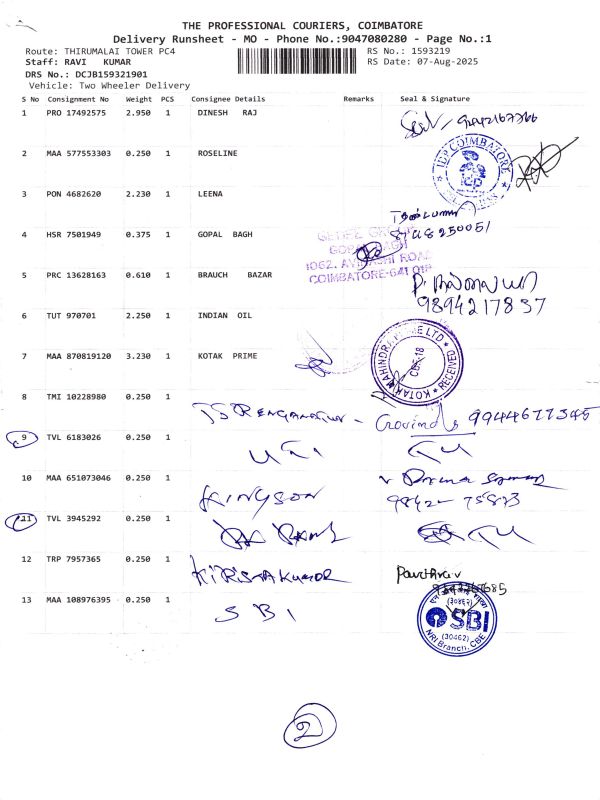 THE PROFESSIONAL COURIERS, COIMBATORE
Delivery Runsheet - MO - Phone No.:9047080280 - Page No.:1
Route: THIRUMALAI TOWER PC4 RS No.: 1593219
Staff: RAVI KUMAR RS Date: 07-Aug-2025
DRS No.: DCJB159321901
Vehicle: Two Wheeler Delivery
S No Consignment No Weight PCS Consignee Details Remarks Seal & Signature
1 PRO 17492575 2.950 1 DINESH RAJ
2 MAA 577553303 0.250 1 ROSELINE
IDP COIMBATORE
3 PON 4682620 2.230 1 LEENA
4 HSR 7501949 0.375 1 GOPAL BAGH
1062, AVINASHI ROAD
COIMBATORE-641 018
5 PRC 13628163 0.610 1 BRAUCH BAZAR
9894217837
6 TUT 970701 2.250 1 INDIAN OIL
7 MAA 870819120 3.230 1 KOTAK PRIME
KOTAK MAHINDRA PRIME LTD
RECEIVED
CBE-18
8 TMI 10228980 0.250 1
9944677345
9 TVL 6183026 0.250 1
10 MAA 651073046 0.250 1 KINGSON
11 TVL 3945292 0.250 1
12 TRP 7957365 0.250 1
13 MAA 108976395 0.250 1 SBI
SBI
(30462)
NRI Branch, CBE
2